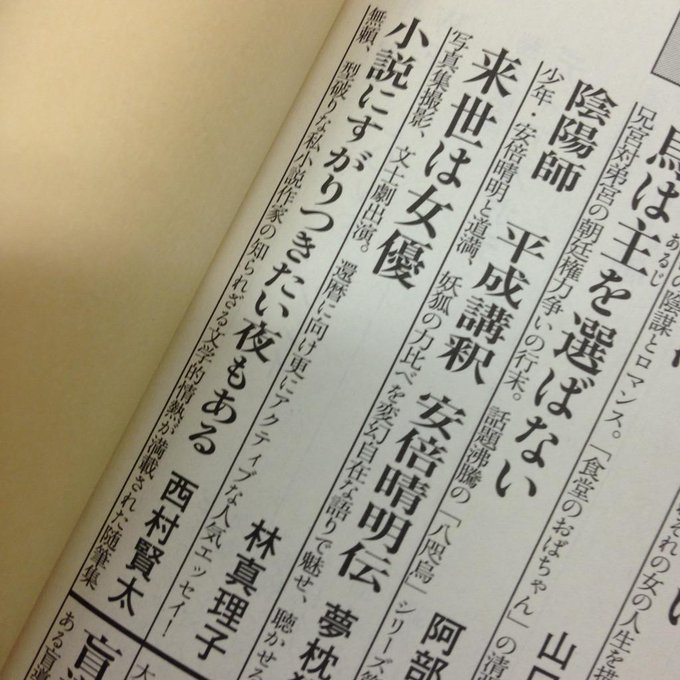 ぞれの女の人生を描
い
山口
の陰謀とロマンス。「食堂のおばちゃん」の清
烏は主を選ばない
あるじ
阿部
兄宮対弟宮の朝廷権力争いの行末。話題沸騰の「八咫烏」シリーズ第
陰陽師 平成講釈 安倍晴明伝 夢枕
少年・安倍晴明と道満、妖狐の力比べを変幻自在な語りで魅せ、聴かせる
来世は女優 林真理子
写真集撮影、文士劇出演。還暦に向け更にアクティブな人気エッセイ!
小説にすがりつきたい夜もある 西村賢太
無頼、型破りな私小説作家の知られざる文学的情熱が満載された随筆集
大
盲導
ある盲導